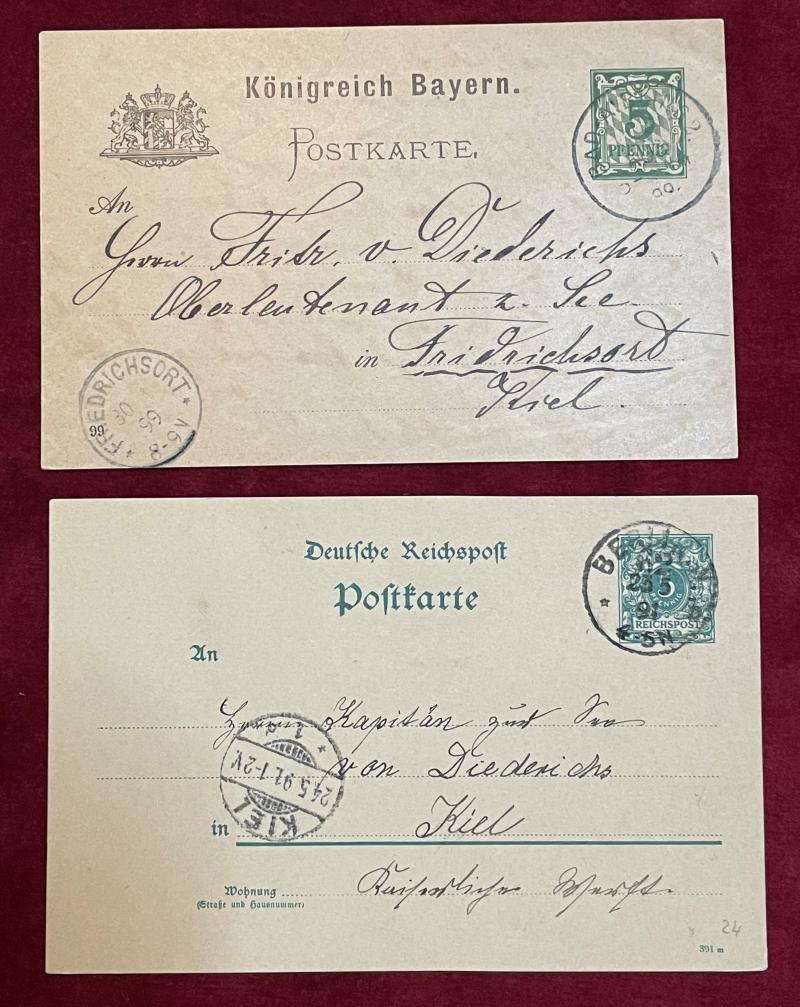 Königreich Bayern.
POSTKARTE.
5
PFENNIG
BAD
An
Herrn Fritz. v. Diederichs
Oberleutenant z. See
in Fridrichsort
Kiel.
FRIEDRICHSORT
30
99
6-8
99
Deutsche Reichspost
Postkarte
5
PFENNIG
REICHSPOST
BERLIN
23 5
91
4-5N
An
Herrn Kapitän zur See
von Diederichs
in Kiel
KIEL
24.5.91.1-2N.
1 d
Wohnung Kaiserliche Werft.
(Straße und Hausnummer)
24
391 m